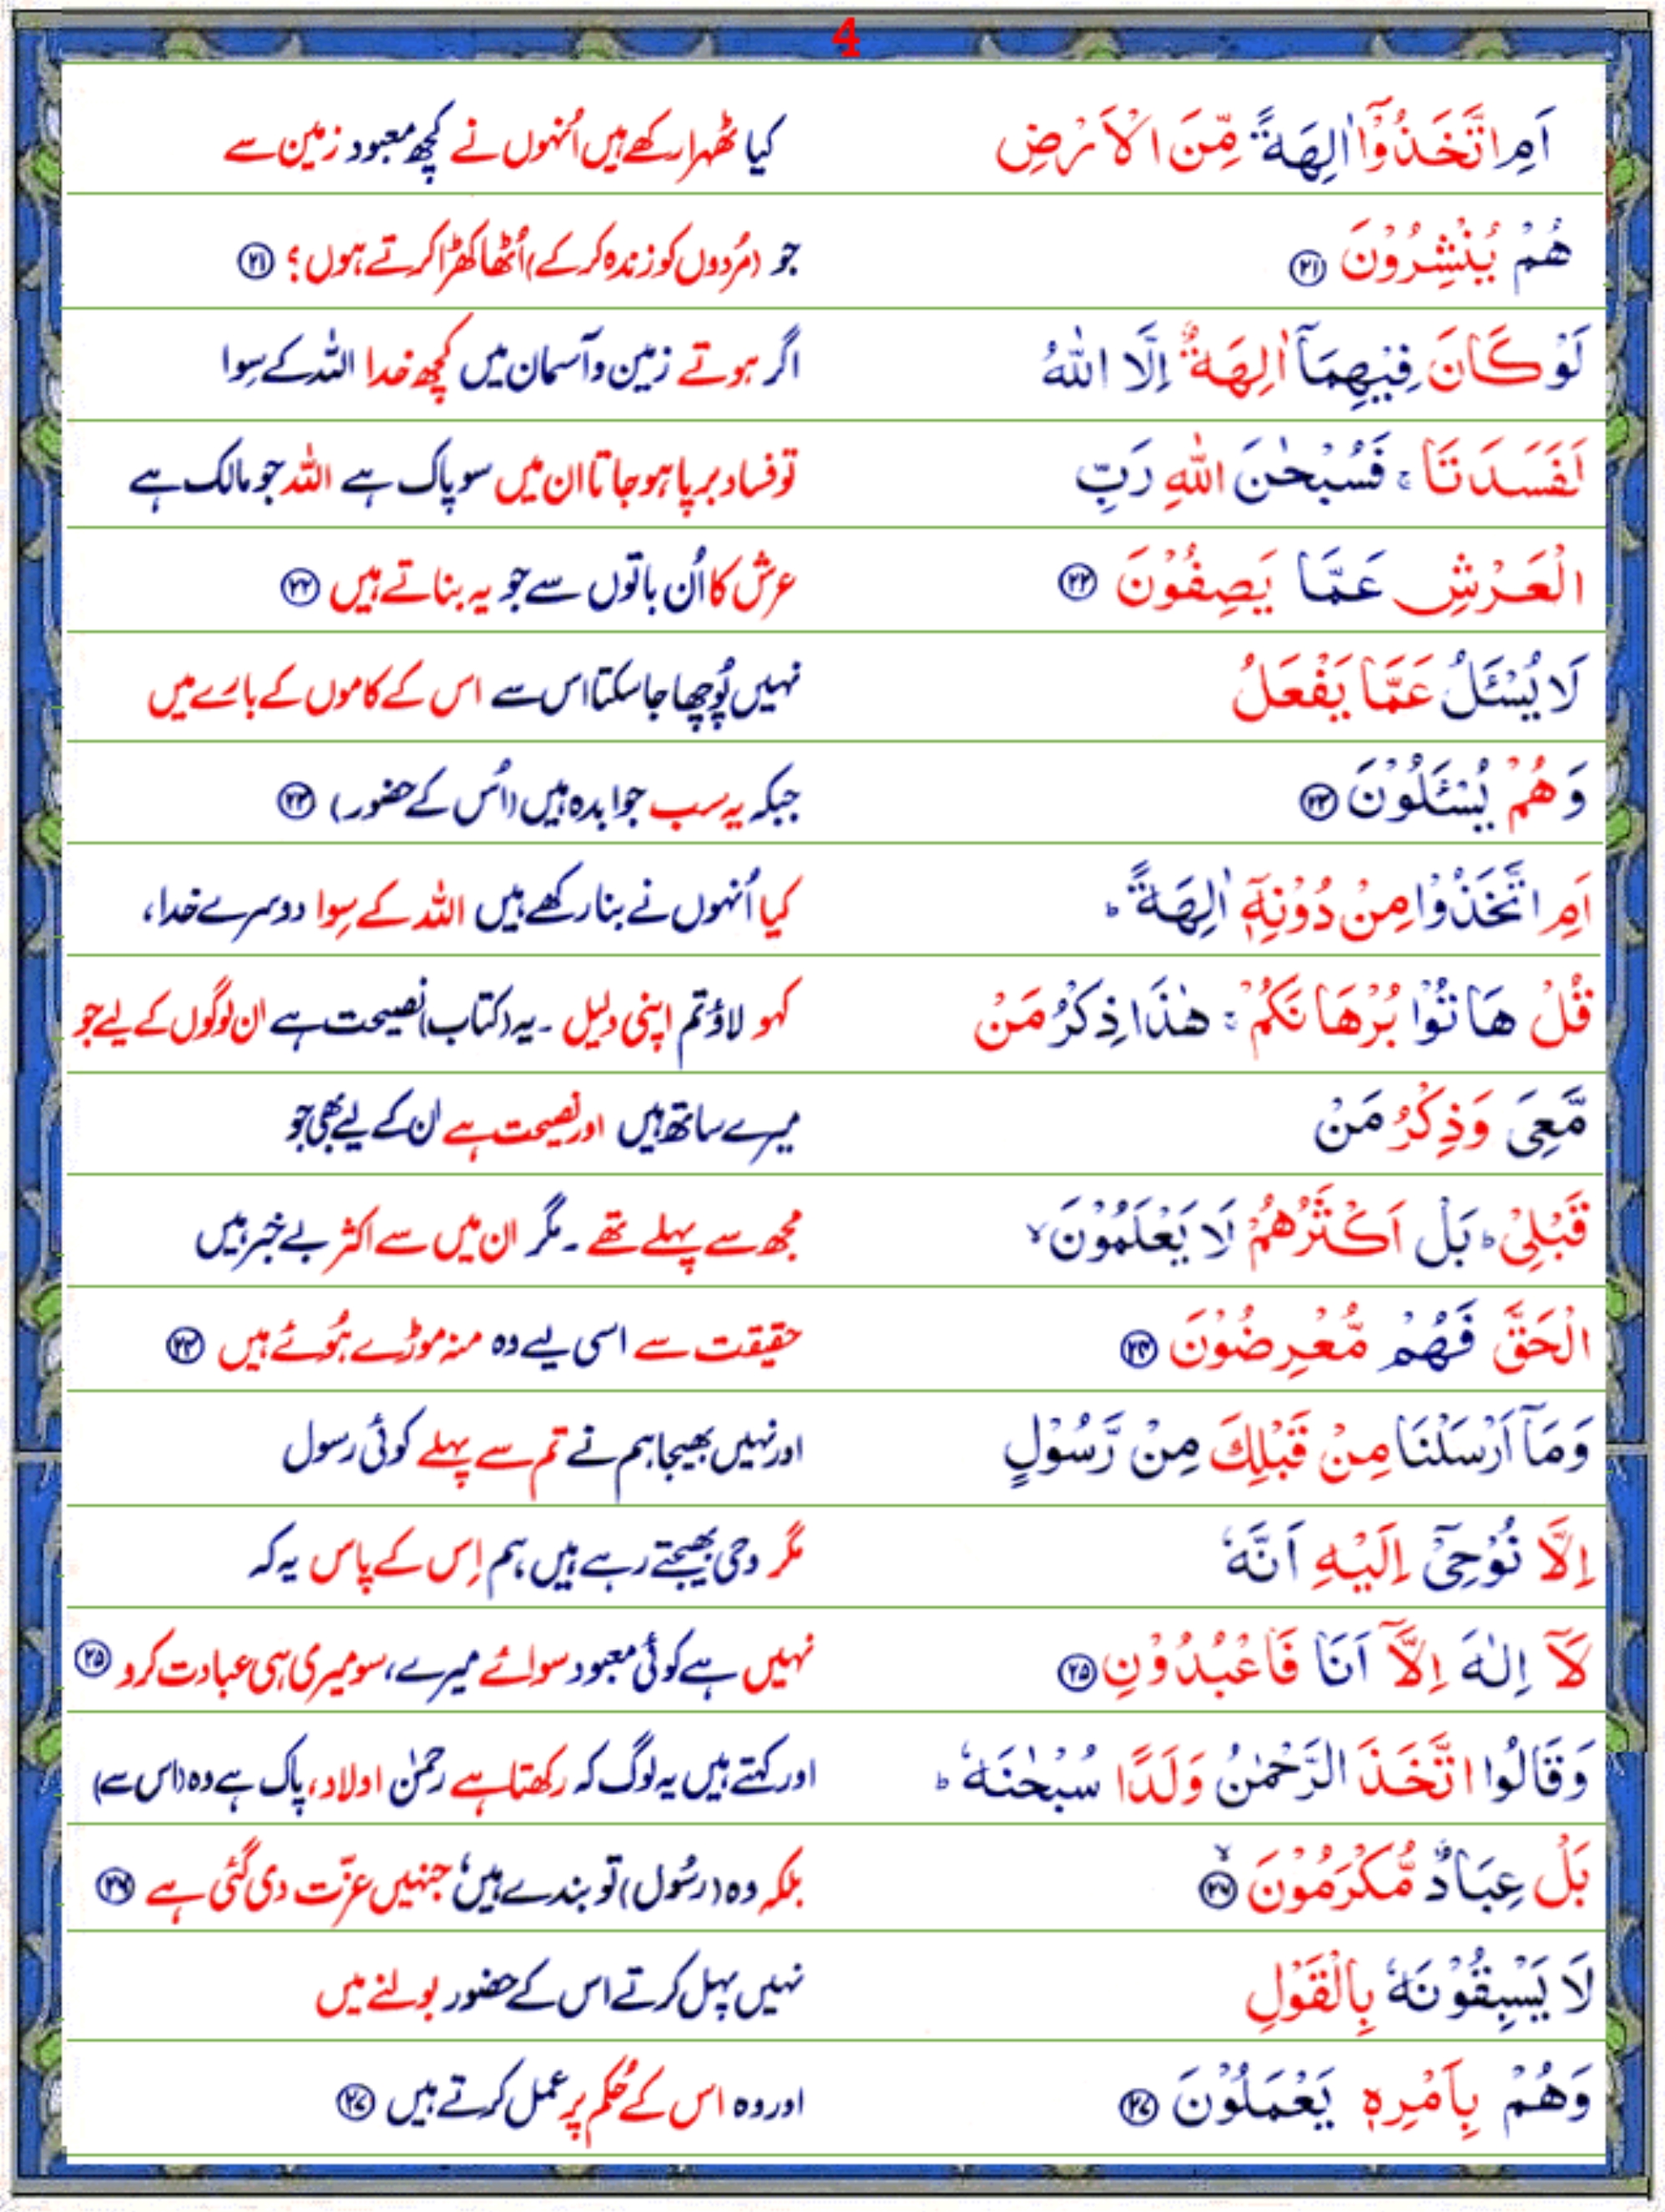 4
اَمِ اتَّخَذُوْۤا اٰلِهَةً مِّنَ الْاَرْضِ کیا ٹھہرا رکھے ہیں اُنہوں نے کچھ معبود زمین سے
هُمْ يُنْشِرُوْنَ ﴿۲۱﴾ جو (مُردوں کو زندہ کر کے) اُٹھا کھڑا کرتے ہوں؟ ﴿۲۱﴾
لَوْ كَانَ فِيْهِمَاۤ اٰلِهَةٌ اِلَّا اللّٰهُ اگر ہوتے زمین و آسمان میں کچھ خدا اللہ کے سِوا
لَفَسَدَتَا ۚ فَسُبْحٰنَ اللّٰهِ رَبِّ تو فساد برپا ہوجاتا ان میں سو پاک ہے اللہ جو مالک ہے
الْعَرْشِ عَمَّا يَصِفُوْنَ ﴿۲۲﴾ عرش کا اُن باتوں سے جو یہ بناتے ہیں ﴿۲۲﴾
لَا يُسْـَٔلُ عَمَّا يَفْعَلُ نہیں پُوچھا جاسکتا اس سے اس کے کاموں کے بارے میں
وَهُمْ يُسْـَٔلُوْنَ ﴿۲۳﴾ جبکہ یہ سب جوابدہ ہیں (اُس کے حضور) ﴿۲۳﴾
اَمِ اتَّخَذُوْا مِنْ دُوْنِهٖۤ اٰلِهَةً ؕ کیا اُنہوں نے بنا رکھے ہیں اللہ کے سِوا دوسرے خدا،
قُلْ هَاتُوْا بُرْهَانَكُمْ ۚ هٰذَا ذِكْرُ مَنْ کہو لاؤ تم اپنی دلیل ۔ یہ (کتاب) نصیحت ہے ان لوگوں کے لیے جو
مَّعِىَ وَذِكْرُ مَنْ میرے ساتھ ہیں اور نصیحت ہے ان کے لیے بھی جو
قَبْلِىْ ؕ بَلْ اَكْثَرُهُمْ لَا يَعْلَمُوْنَ ۙ مجھ سے پہلے تھے ۔ مگر ان میں سے اکثر بے خبر ہیں
الْحَقَّ فَهُمْ مُّعْرِضُوْنَ ﴿۲۴﴾ حقیقت سے اسی لیے وہ منہ موڑے ہُوئے ہیں ﴿۲۴﴾
وَمَاۤ اَرْسَلْنَا مِنْ قَبْلِكَ مِنْ رَّسُوْلٍ اور نہیں بھیجا ہم نے تم سے پہلے کوئی رسول
اِلَّا نُوْحِىْۤ اِلَيْهِ اَنَّهٗ مگر وحی بھیجتے رہے ہیں ہم اِس کے پاس یہ کہ
لَاۤ اِلٰهَ اِلَّاۤ اَنَا فَاعْبُدُوْنِ ﴿۲۵﴾ نہیں ہے کوئی معبود سوائے میرے، سو میری ہی عبادت کرو ﴿۲۵﴾
وَقَالُوا اتَّخَذَ الرَّحْمٰنُ وَلَدًا سُبْحٰنَهٗ ؕ اور کہتے ہیں یہ لوگ کہ رکھتا ہے رحمٰن اولاد، پاک ہے وہ (اس سے)
بَلْ عِبَادٌ مُّكْرَمُوْنَ ﴿۲۶﴾ۙ بلکہ وہ (رسُول) تو بندے ہیں، جنہیں عزّت دی گئی ہے ﴿۲۶﴾
لَا يَسْبِقُوْنَهٗ بِالْقَوْلِ نہیں پہل کرتے اس کے حضور بولنے میں
وَهُمْ بِاَمْرِهٖ يَعْمَلُوْنَ ﴿۲۷﴾ اور وہ اس کے حُکم پر عمل کرتے ہیں ﴿۲۷﴾